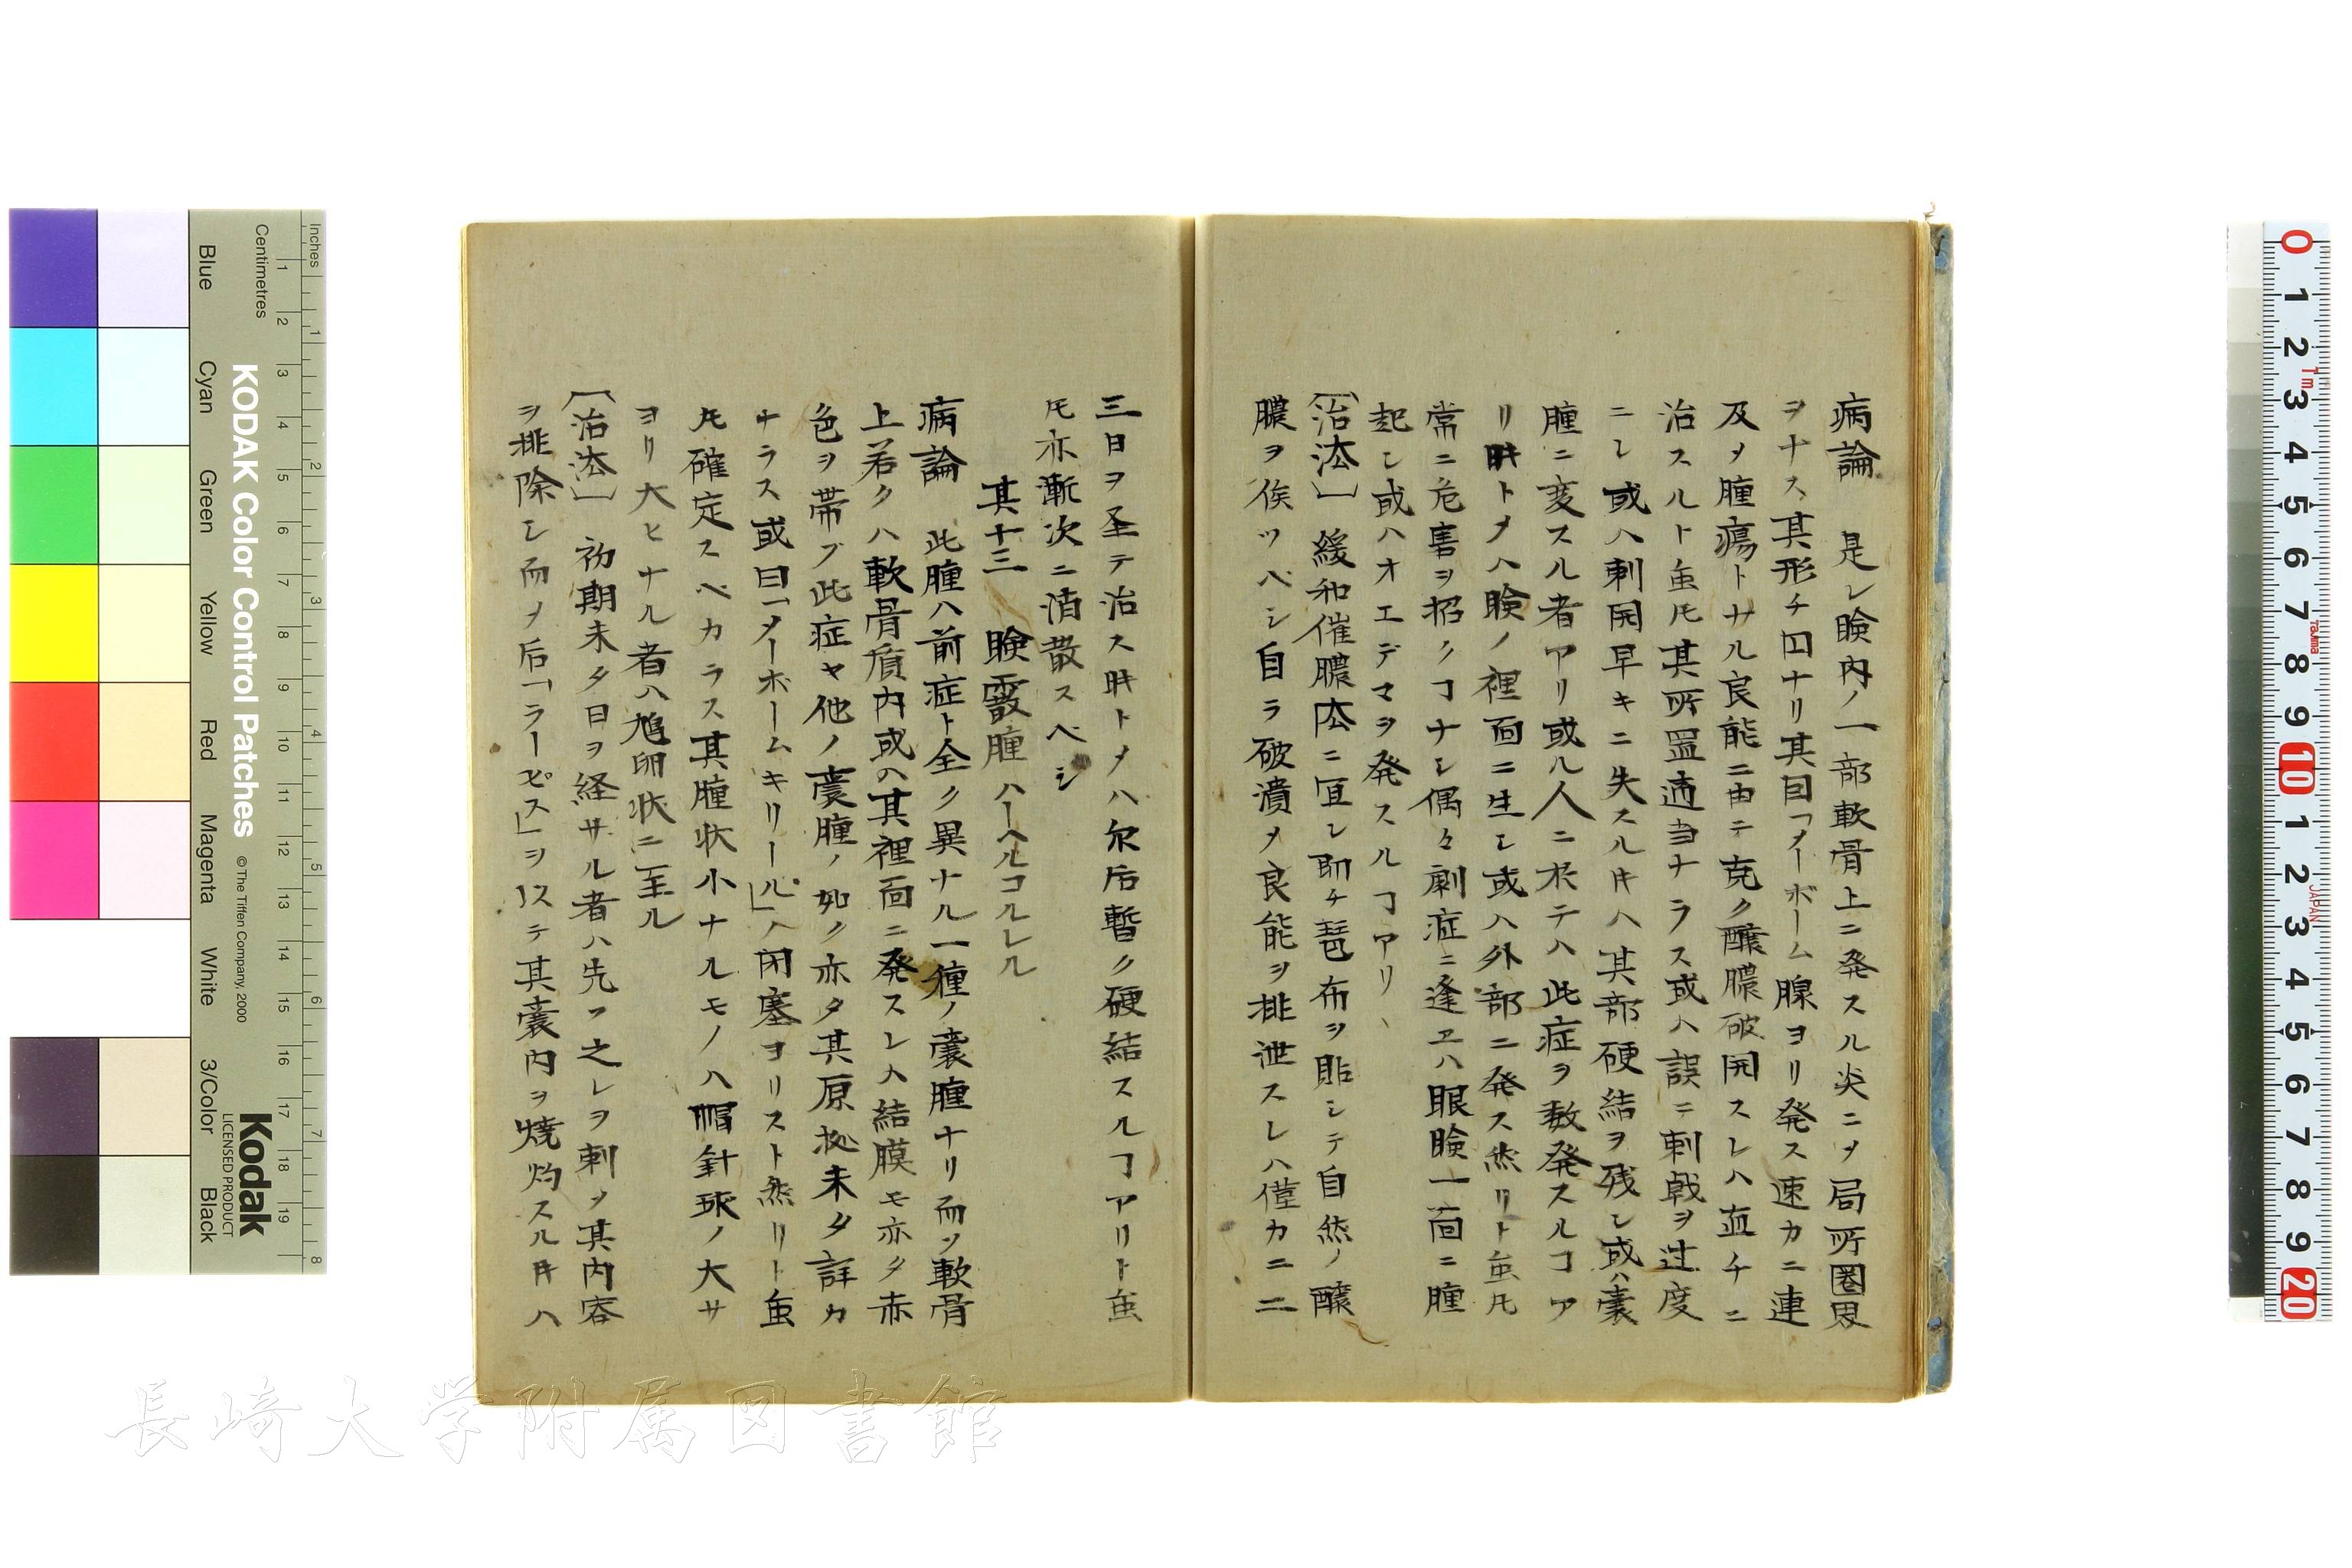 病論 是レ瞼内ノ一部軟骨上ニ発スル炎ニメ局所圏男
ヲナス其形チ円ナリ其因「メーボーム腺ヨリ発ス速カニ連
及メ腫瘍トナル良能ニ由テ克ク醸膿破開スレハ直チニ
治スルト虽𪜈其所置適当ナラス或ハ誤テ刺戟ヲ過度
ニシ或ハ刺開早キニ失スル𬼀ハ其部硬結ヲ残シ或ハ嚢
腫ニ変スル者アリ或ル人ニ於テハ此症ヲ数発スルヿア
リ時トメハ瞼ノ裡面ニ生シ或ハ外部ニ発ス然リト虽𪜈
常ニ危害ヲ招クヿナシ偶々劇症ニ逢ヱハ眼瞼一面ニ腫
起シ或ハオエデマヲ発スルヿアリ
〔治法〕 緩和催膿法ニ宜シ即チ琶布ヲ貼シテ自然ノ醸
膿ヲ俟ツベシ自ラ破潰メ良能ヲ排泄スレハ僅カニ二
三日ヲ圣テ治ス時トメハ尓后暫ク硬結スルヿアリト虽
𪜈亦漸次ニ消散スベシ
其十三 瞼霰腫 ハーヘルコルレル
病論 此腫ハ前症ト全ク異ナル一種ノ嚢腫ナリ而ソ軟骨
上若クハ軟骨質内或ハ其裡面ニ発スレハ結膜モ亦タ赤
色ヲ帯ブ此症ヤ他ノ嚢腫ノ如ク亦タ其原拠未タ詳カ
ナラス或曰「メーボームキリール」ノ閉塞ヨリスト然リト虽
𪜈確定スベカラス其腫状小ナルモノハ帽針球ノ大サ
ヨリ大ヒナル者ハ鳩卵状ニ至ル
〔治法〕 初期未タ日ヲ経サル者ハ先ツ之レヲ刺メ其内容
ヲ排除シ而メ后「ラーピス」ヲ以テ其嚢内ヲ焼灼スル𬼀ハ
Inches
Centimetres
KODAK Color Control Patches
© The Tiffen Company, 2000
Kodak
LICENSED PRODUCT
Blue Cyan Green Yellow Red Magenta White 3/Color Black
長崎大学附属図書館